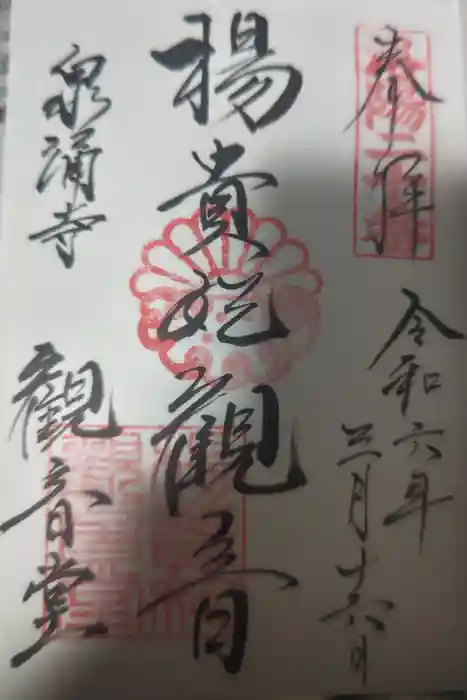 奉拝
令和六年
三月十六日
楊貴妃觀音
泉涌寺
觀音堂